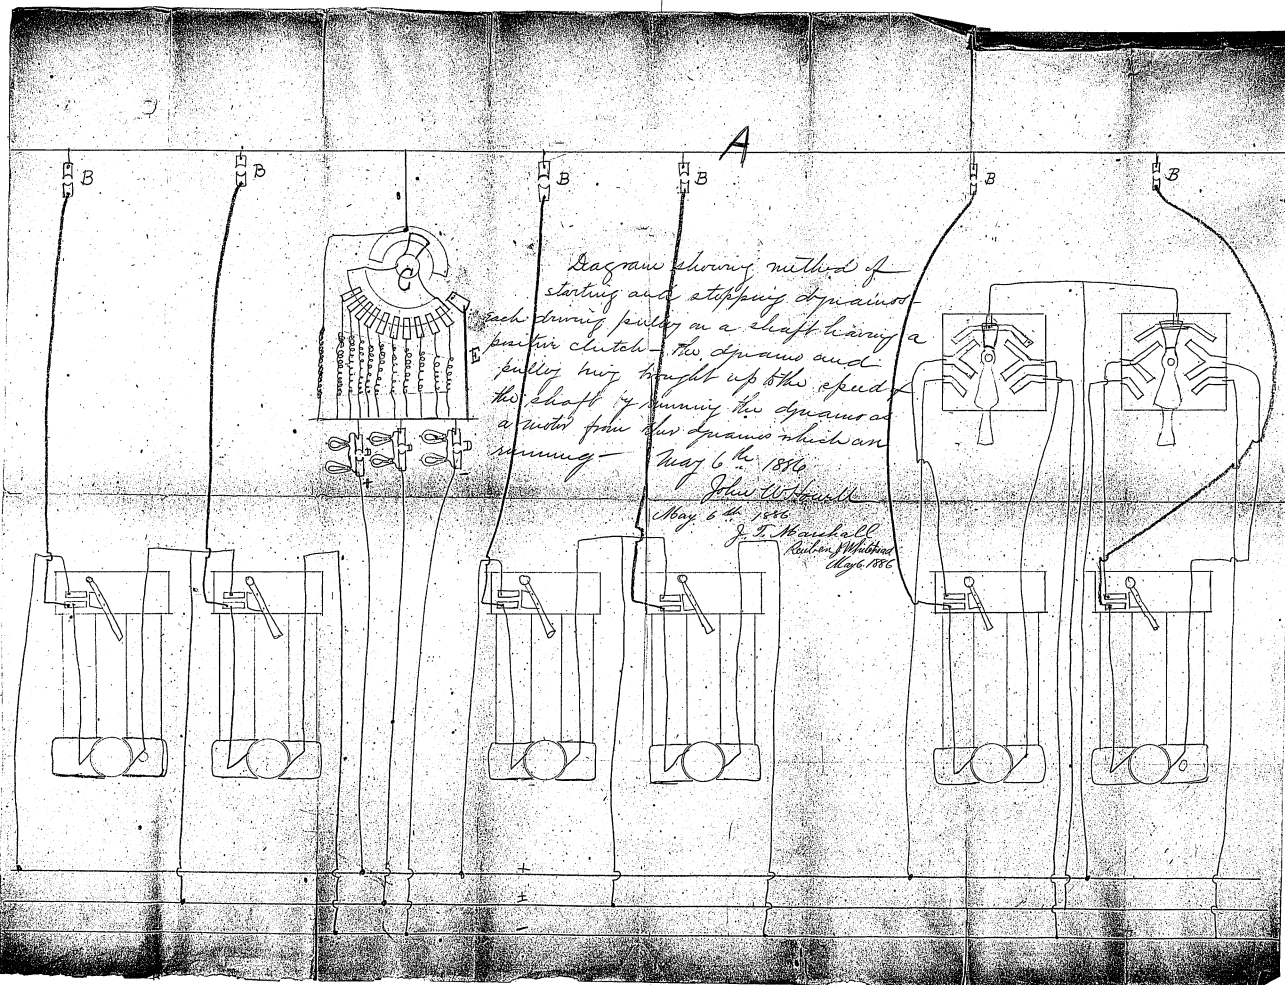 A
B B B B B B
C
E
Diagram showing method of
starting and stopping dynamos
each driving pulley on a shaft having a
positive clutch - the dynamo and
pulley being brought up to the speed of
the shaft by running the dynamo as
a motor from the dynamos which are
running -
May 6th 1886
John W Howell
May 6th 1886
J. T. Marshall
Reuben
May 6. 1886
+
-
+
±
-